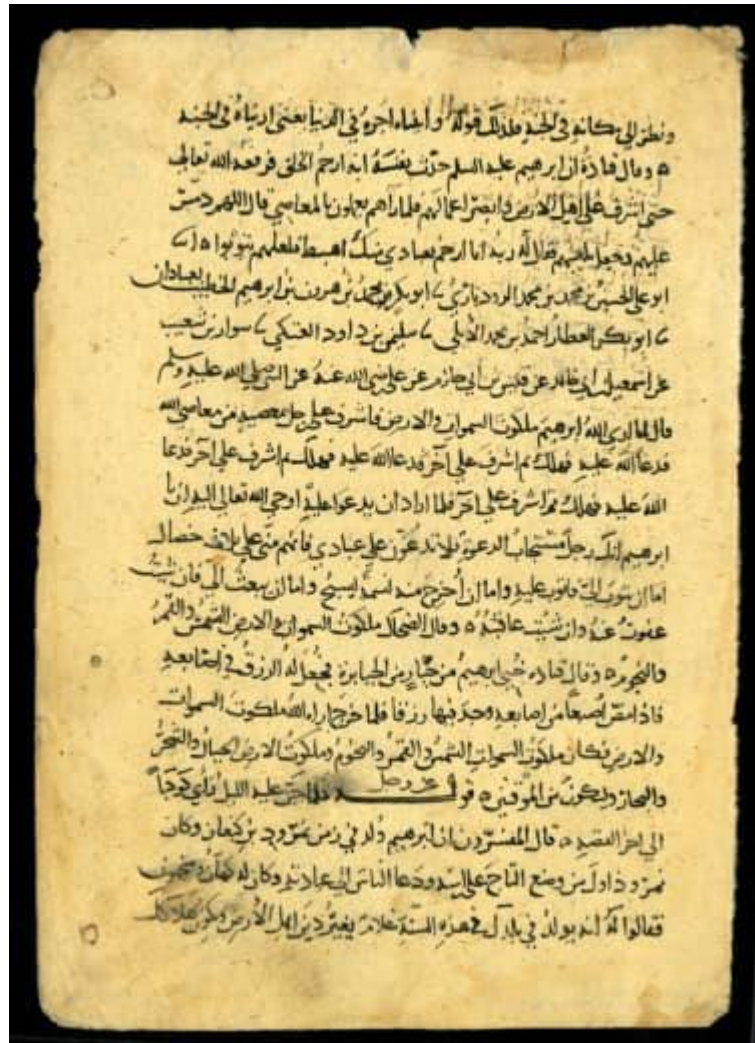 ونظر الى مكانه في الجنة فذلك قوله وآتيناه اجره في الدنيا يعني اريناه في الجنة
ه وقال قتادة ان ابرهيم عليه السلم حدث نفسه انه ارحم الخلق فرفعه الله تعالى
حتى اشرف على اهل الارض وابصر اعمالهم فلما رآهم يعملون بالمعاصي قال اللهم دمّر
عليهم وجعل يلعنهم فقال له ربه انا ارحم بعبادي منك اهبط فلعلهم يتوبوا ه
ابو علي الحسين بن محمد بن محمد الروذباري ابو بكر محمد بن هرون بن ابرهيم الخطيب بعبادان
ابو بكر العطار احمد بن محمد الأبلي سليمن بن داود العتكي سوار بن شعيب
عن اسمعيل بن ابي خالد عن قيس بن ابي حازم عن علي رضي الله عنه عن النبي صلى الله عليه وسلم
قال لما اري الله ابرهيم ملكوت السموات والارض فاشرف على رجل بمعصية من معاصي الله
فدعا الله عليه فهلك ثم اشرف على آخر فدعا الله عليه فهلك ثم اشرف على آخر فدعا
الله عليه فهلك ثم اشرف على آخر فلما اراد ان يدعوا عليه اوحى الله تعالى اليه ان يا
ابرهيم انك رجل مستجاب الدعوة فلا تدعون على عبادي فانهم مني على ثلاث خصال
اما ان يتوب اليّ فاتوب عليه واما ان أخرج منه نسمة تسبح واما ان يبعث الي فان شئت
عفوت عنه وان شئت عاقبته ه وقال الضحاك ملكوت السموات والارض الشمس والقمر
والنجوم ه وقال قتاده خبي ابرهيم من جبار من الجبابرة فجعل له الرزق في اصابعه
فاذا مصّ إصبعاً من اصابعه وجد فيها رزقا فلما خرج اراه الله ملكوت السموات
والارض فكان ملكوت السموات الشمس والقمر والنجوم وملكوت الارض الجبال والشجر
والبحار وليكون من الموقنين ه قوله عز وجل فلما جن عليه الليل رأى كوكباً
الى اخر القصة ه قال المفسرون ان ابرهيم ولد في زمن نمرود بن كنعان وكان
نمروذ اول من وضع التاج على راسه ودعا الناس الى عبادته وكان له كهان ومنجمون
فقالوا له انه يولد في بلدك في هذه السنة غلام يغير دين اهل الارض ويكون هلاكك